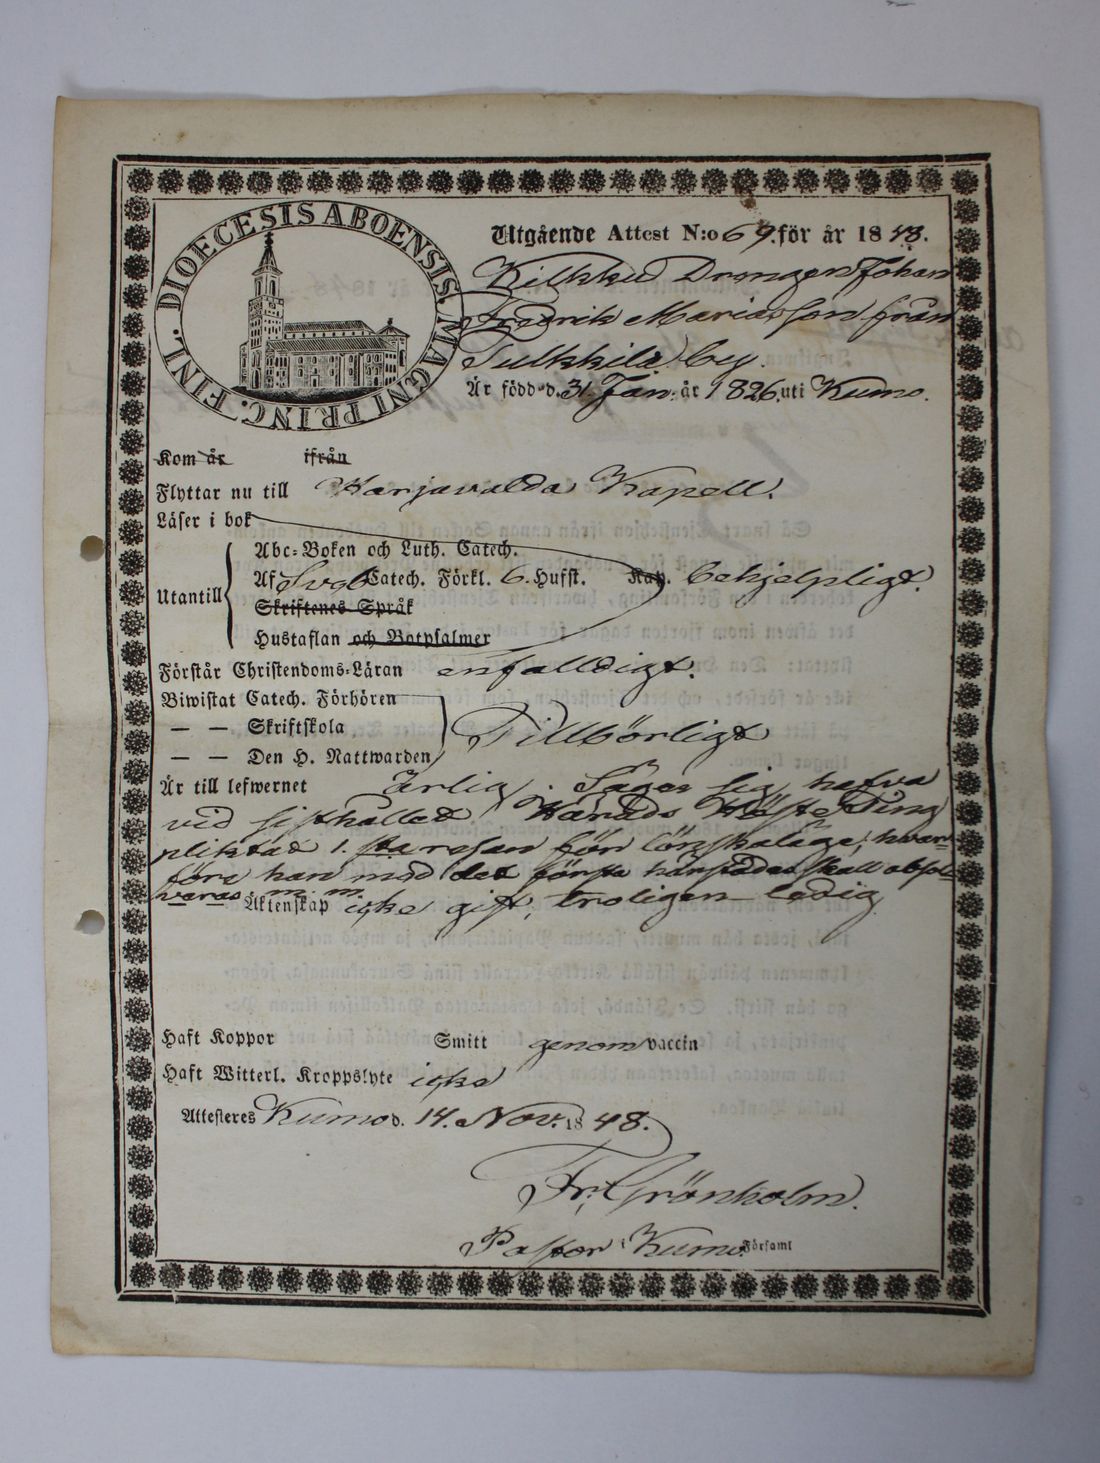 DIOECESIS ABOENSIS. MAGNI PRINC. FINL.
Utgående Attest N:o 69. för år 1848.
Kilkku Drengen Johan
Fredrik Mariasson från
Tulkkila by.
Är född d. 31. Jan: år 1826. uti Kumo.
Kom år ifrån
Flyttar nu till Harjavalda Kapell.
Läser i bok
Utantill
Abc-Boken och Luth. Catech.
Af Sveb Catech. Förkl. 6. Hufst. Kap. behjelpligt.
Skriftenes Språk
Hustaflan och Botpsalmer
Förstår Christendoms-Läran enfalldigt.
Biwistat Catech. Förhören
— — Skriftskola
— — Den H. Nattwarden
Tillbörligt
Är till lefwernet Ärlig, Säger sig hafva
vid sisthållet Härads Höste Ting
pliktat 1. sta resan för lönskaläge; hvar-
före han med det första härstädes skall absol-
veras m. m.
Äktenskap icke gift, troligen ledig
Haft Koppor Smitt genom vaccin
Haft Witterl. Kroppslyte icke
Attesteres Kumo d. 14. Nov. 1848.
Fr. Grönholm.
Pastor i Kumo Församl